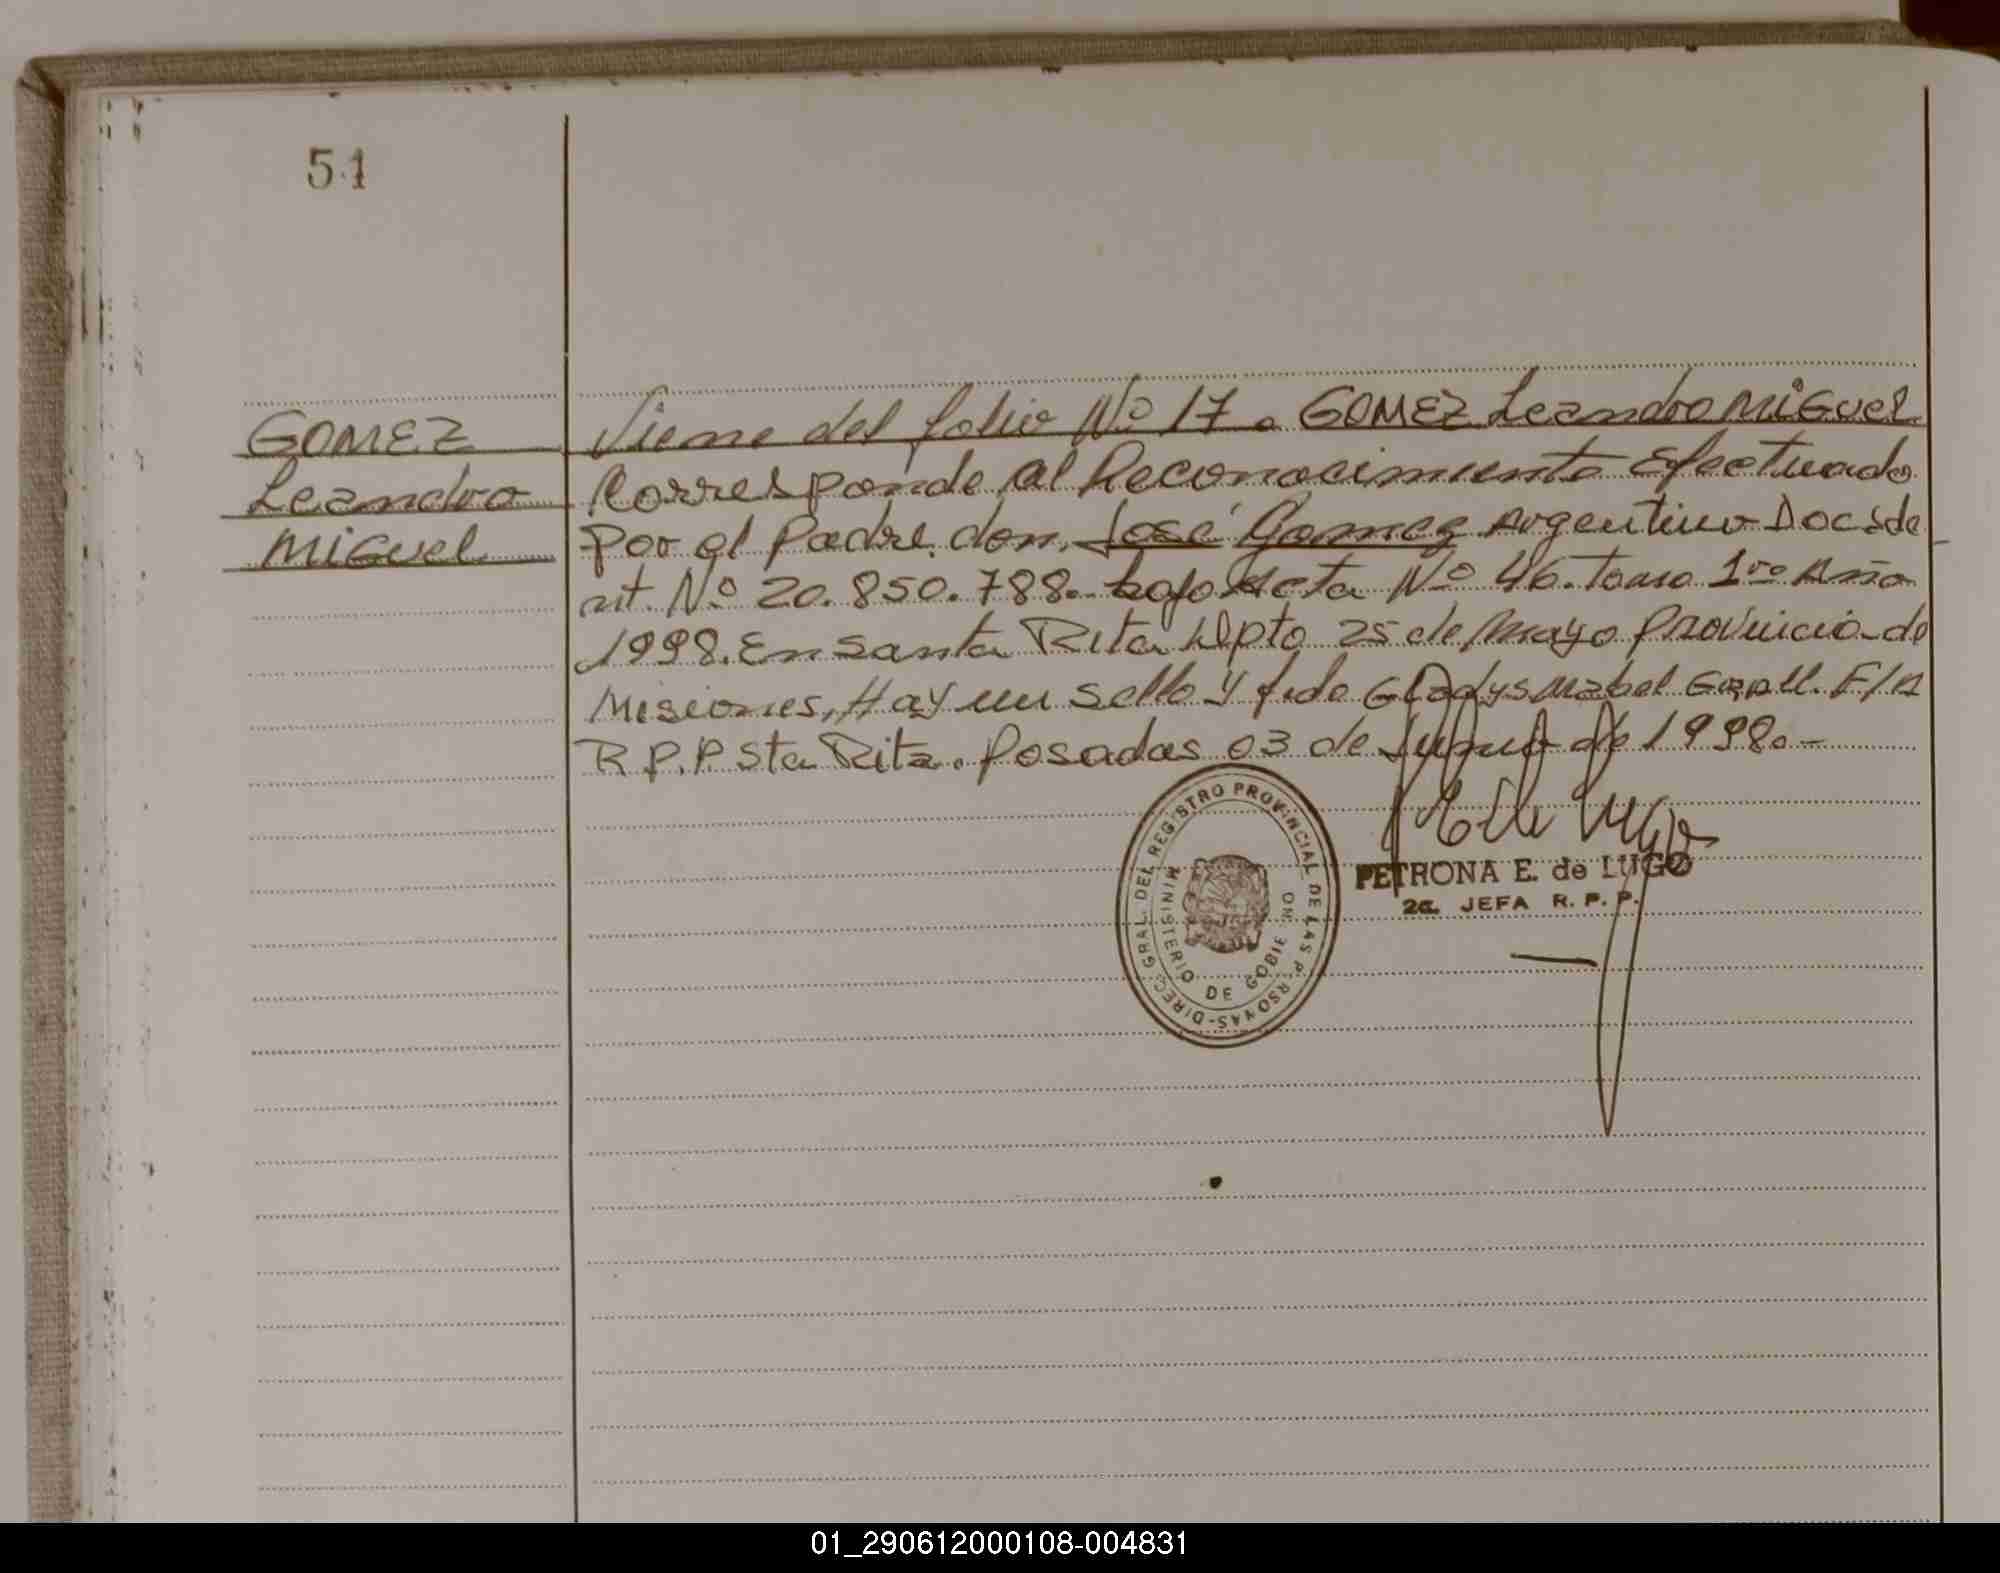 51
GOMEZ
Leandro
MIGuel
Viene del folio Nº 17. GOMEZ Leandro MIGuel
Corresponde al Reconocimiento efectuado
por el Padre don, José Gomez Argentino Doc. de
Nº 20.850.788. bajo Acta Nº 46. Tomo 1ro Año
1998. En Santa Rita Dpto 25 de Mayo Provincia de
Misiones, Hay un sello y fdo Gladys Mabel
R.P.P. Sta Rita. Posadas 03 de Junio de 1998.-
DIREC. GRAL. DEL REGISTRO PROVINCIAL DE LAS P RSONAS-
MINISTERIO DE GOBIE NO
PETRONA E. de LUGO
2a. JEFA R. P. P.
01_290612000108-004831